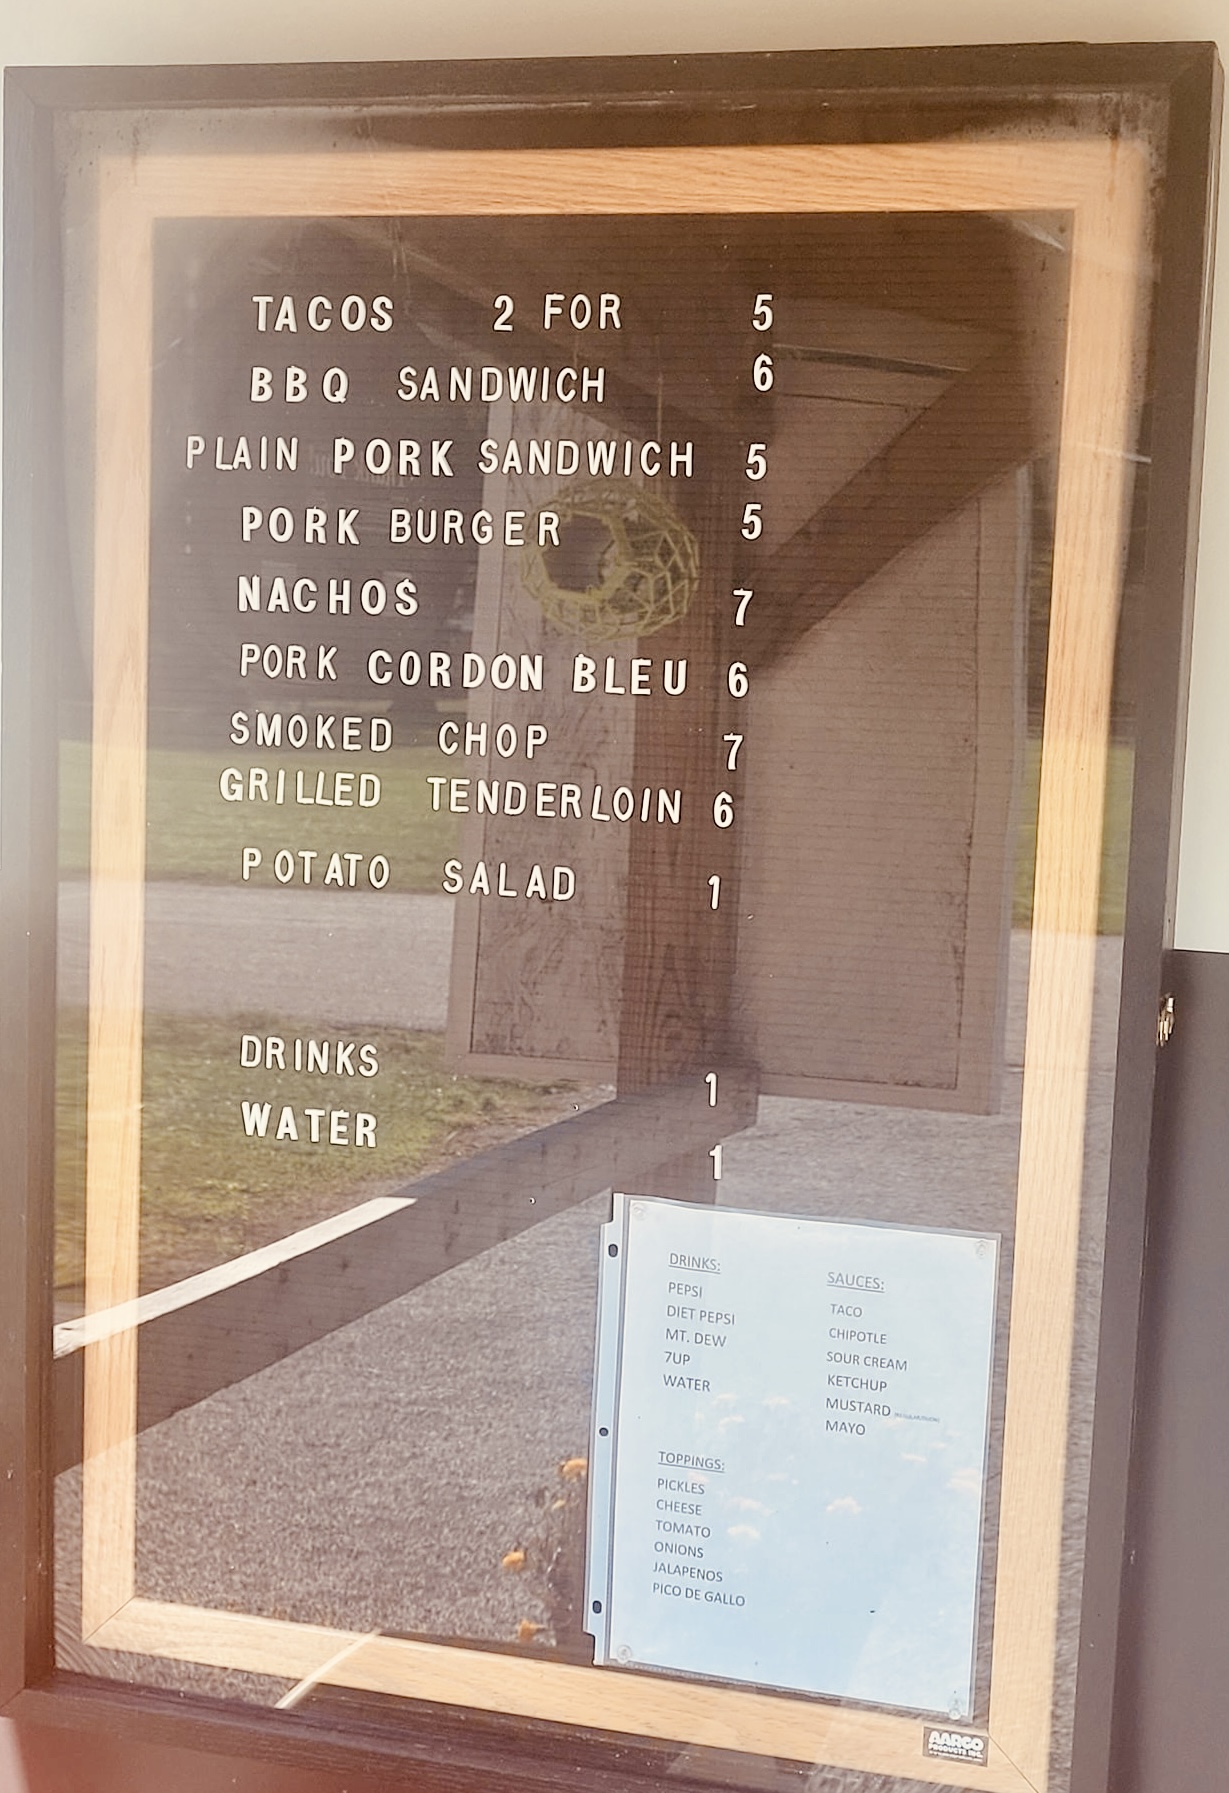 TACOS 2 FOR 5
BBQ SANDWICH 6
PLAIN PORK SANDWICH 5
PORK BURGER 5
NACHOS 7
PORK CORDON BLEU 6
SMOKED CHOP 7
GRILLED TENDERLOIN 6
POTATO SALAD 1
DRINKS 1
WATER 1
DRINKS:
PEPSI
DIET PEPSI
MT. DEW
7UP
WATER
SAUCES:
TACO
CHIPOTLE
SOUR CREAM
KETCHUP
MUSTARD
MAYO
TOPPINGS:
PICKLES
CHEESE
TOMATO
ONIONS
JALAPENOS
PICO DE GALLO
AARCO
PRODUCTS INC.